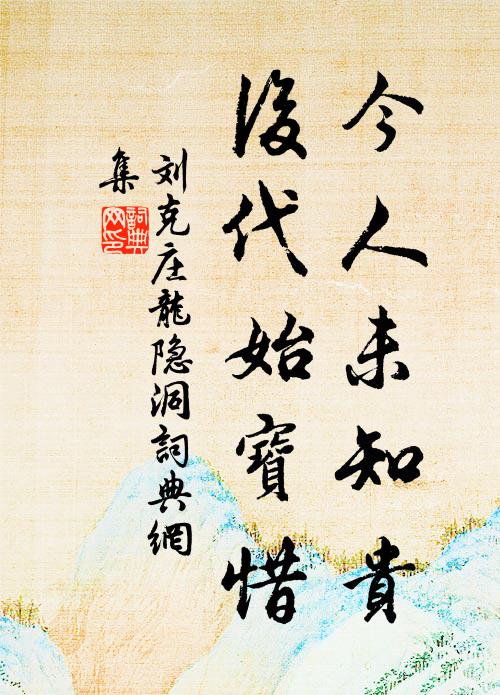 今人未知貴
後代始寶惜
刘克庄龍隐洞詞典網
集
詞典
网印